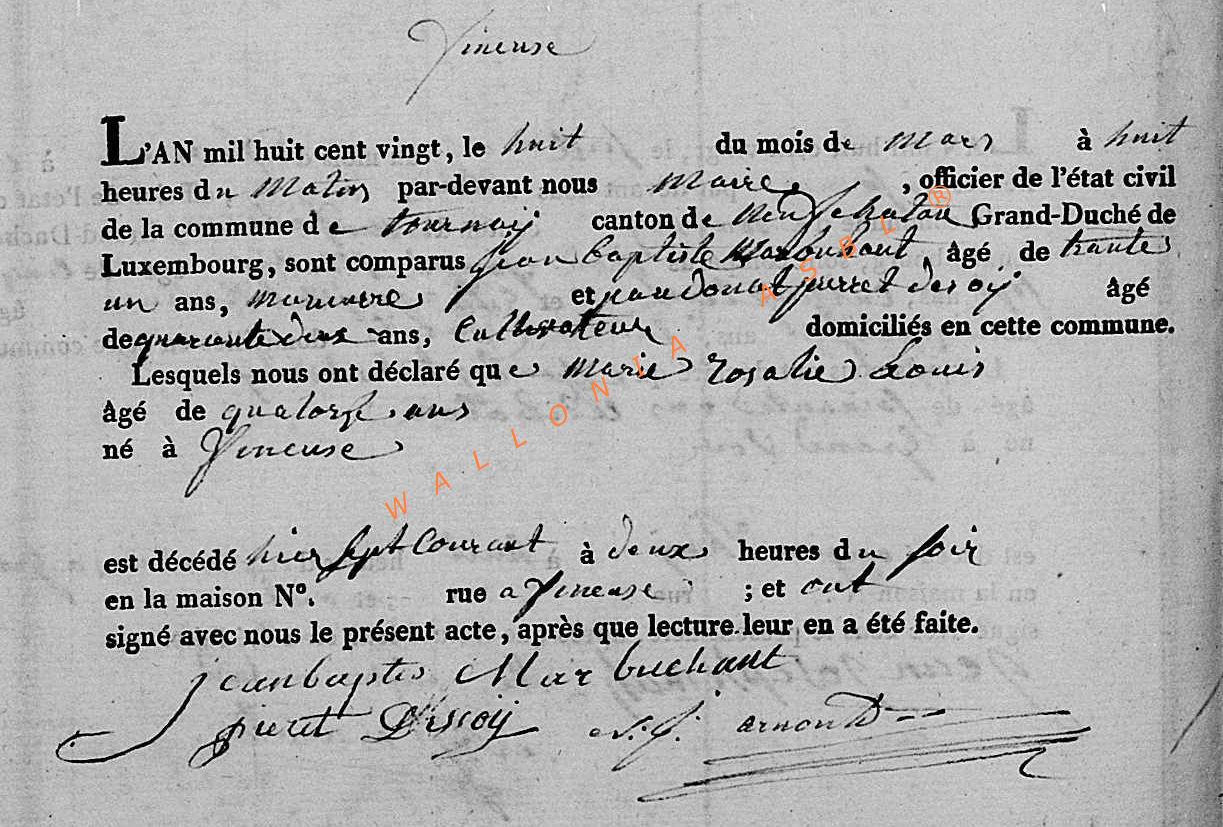 Vineuse
L'AN mil huit cent vingt, le huit du mois de Mars à huit
heures du Matin par-devant nous Maire, officier de l'état civil
de la commune de tournay canton de Neufchatau Grand-Duché de
Luxembourg, sont comparus jean Baptiste , âgé de trante
un ans, et âgé
de quarante deux ans, Cultivateur domiciliés en cette commune.
Lesquels nous ont déclaré que Marie Rosalie Louis
âgé de quatorze ans
né à Vineuse
est décédé hier sept Courant à deux heures du soir
en la maison N°. rue a Vineuse ; et ont
signé avec nous le présent acte, après que lecture leur en a été faite.
jean baptis Marbuchant
pieret
arnould
WALLONIA ASBL ®